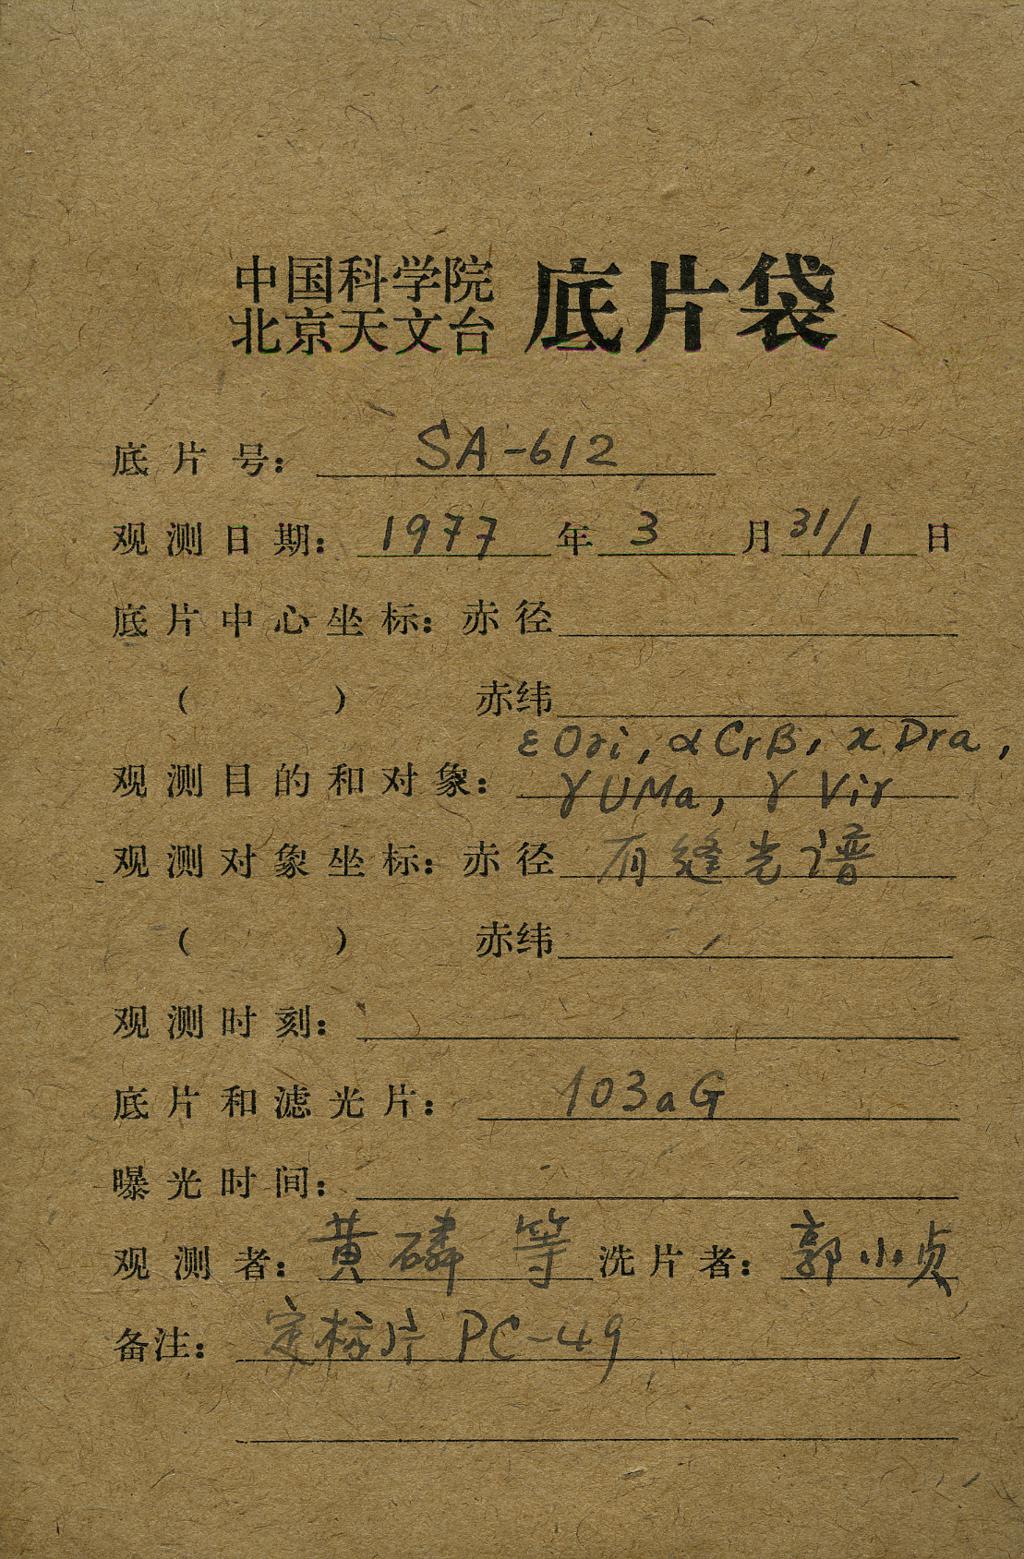 中国科学院
北京天文台 底片袋
底片号: SA-612
观测日期: 1977年3月31/1日
底片中心坐标: 赤径
( ) 赤纬
εOri, αCrB, κDra,
观测目的和对象: γUMa, γVir
观测对象坐标: 赤径 有缝光谱
( ) 赤纬
观测时刻:
底片和滤光片: 103aG
曝光时间:
观测者: 黄磷 等 洗片者: 郭小贞
备注: 定标片 PC-49